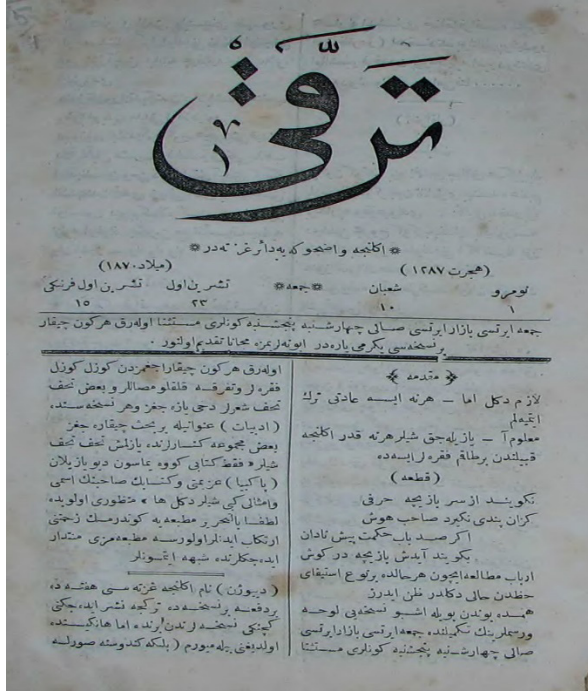 ترقی
اكلنجه و اضحوكه یه دائر غزته در
(هجرت ۱۲۸۷) (میلاد ۱۸۷۰)
نومرو شعبان جمعه تشرین اول تشرین اول فرنكی
۱ ۱۰ ۲۳ ۱۵
جمعه ایرتسی بازار ایرتسی صالی چهارشنبه پنجشنبه كونلری مستثنا اوله رق هركون چیقار
بر نسخه سی یكرمی پاره در ابونه لریمزه مجانا تقدیم اولنور.
مقدمه
لازم دكل اما — هرنه ایسه عادتی ترك
ایتمیه لم
معلوم آ — یازیله جق شیلر هرنه قدر اكلنجه
قبیلندن برطاقم فقره لر ایسه ده
(قطعه)
نكویند از سر بازیچه حرفی
كزان پندی نكیرد صاحب هوش
اكر صد باب حكمت پیش نادان
بكویند آیدش بازیچه در كوش
ارباب مطالعه ایچون هرحالده بر نوع استیفای
حظدن خالی دكلدر ظن ایدرز
همده بوندن بویله اشبو نسخه یی لوحه
ورسملرینك تكمیلنده جمعه ایرتسی بازار ایرتسی
صالی چهارشنبه پنجشنبه كونلری مستثنا
اوله رق هركون چیقاراجغمزدن كوزل كوزل
فقره لر وتفرقه قلقلو مصاللر و بعض تحف
تحف شعرلر دخی یازه جغز وهر نسخه سنده
(ادبیات) عنوانیله بر بحث چیقاره جغز
بعض مجموعه كنارلرنده یازلمش تحف تحف
شیلر « فقط كتابی كووه یماسون دیو یازیلان
(یا كبیا) عزیمتی وكتابك صاحبنك اسمی
وامثالی كبی شیلر دكل ها » منظوری اولوبده
لطفا با تحریر مطبعه یه كوندرمك زحمتنی
ارتكاب ایدنلر اولورسه مطبعه مزی منتدار
ایده جكلرنده شبهه ایتمسونلر
(دیوژن) نام اكلنجه غزته سی هفته ده
بر دفعه بر نسخه ده تركجه نشر ایده جكنی
كچنكی نسخه لرندن برنده اما هانكیسنده
اولدیغنی بیله میورم (بلكه كندوسنه صورلسه